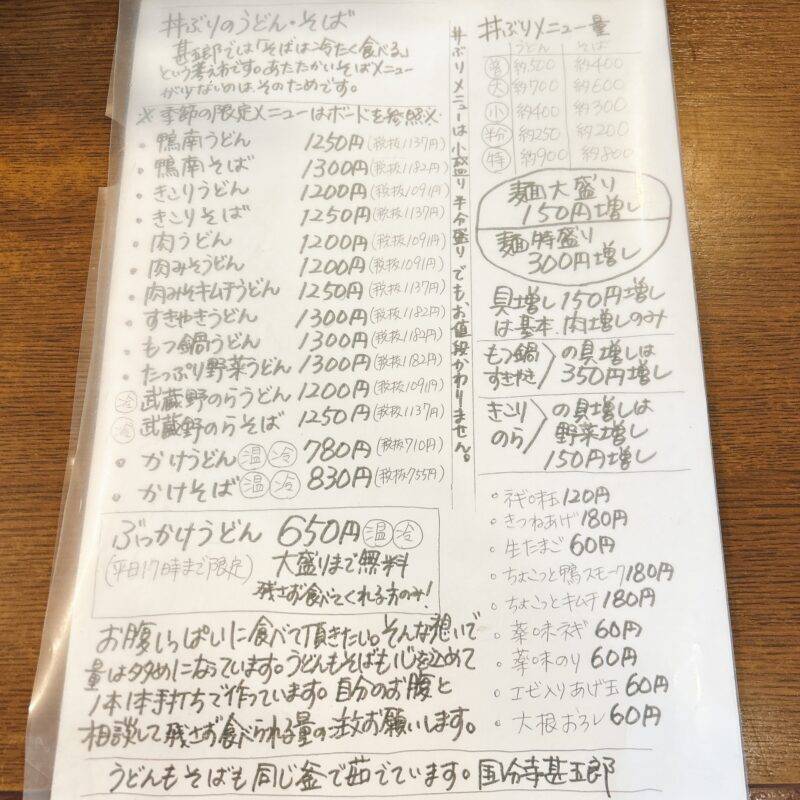 丼ぶりのうどん・そば
甚五郎では「そばは冷たく食べる」
という考え方です。あたたかいそばメニュー
が少ないのは、そのためです。
※季節の限定メニューはボードを参照※
・鴨南うどん 1250円(税抜1137円)
・鴨南そば 1300円(税抜1182円)
・きこりうどん 1200円(税抜1091円)
・きこりそば 1250円(税抜1137円)
・肉うどん 1200円(税抜1091円)
・肉みそうどん 1200円(税抜1091円)
・肉みそキムチうどん 1250円(税抜1137円)
・すきやきうどん 1300円(税抜1182円)
・もつ鍋うどん 1300円(税抜1182円)
・たっぷり野菜うどん 1300円(税抜1182円)
冷 武蔵野のらうどん 1200円(税抜1091円)
冷 武蔵野のらそば 1250円(税抜1137円)
・かけうどん 温 冷 780円(税抜710円)
・かけそば 温 冷 830円(税抜755円)
丼ぶりメニューは小盛り半分盛りでも、お値段かわりません。
ぶっかけうどん 650円 温 冷
(平日17時まで限定) 大盛りまで無料
残さず食べてくれる方のみ!
お腹いっぱいに食べて頂きたい。そんな想いで
量は多めになっています。うどんもそばも心を込めて
1本1本手打ちで作っています。自分のお腹と
相談して残さず食べられる量の注文お願いします。
うどんもそばも同じ釜で茹でています。国分寺甚五郎
丼ぶりメニュー量
うどん そば
普 約500 約400
大 約700 約600
小 約400 約300
約250 約200
特 約900 約800
麺大盛り
150円増し
麺特盛り
300円増し
具増し150円増し
は基本、肉増しのみ
もつ鍋
すきやき
の具増しは
350円増し
きこり
のら
の具増しは
野菜増し
150円増し
・ネギ味玉 120円
・きつねあげ 180円
・生たまご 60円
・ちょこっと鴨スモーク 180円
・ちょこっとキムチ 180円
・薬味ネギ 60円
・薬味のり 60円
・エビ入りあげ玉 60円
・大根おろし 60円